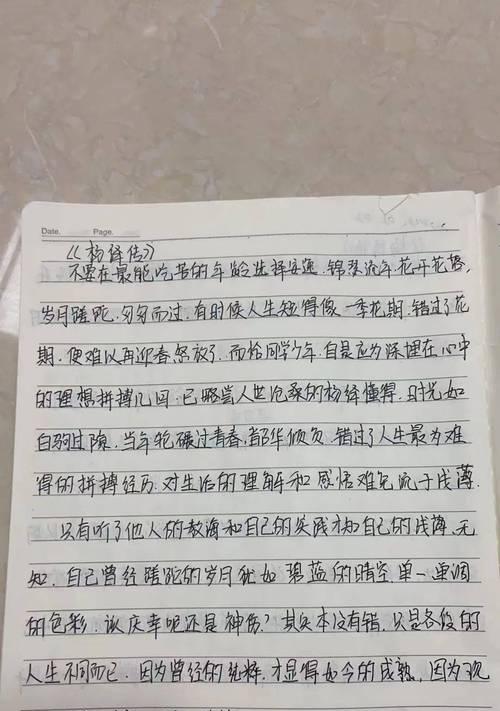 Date. Page.
《杨绛传》
不要在最能吃苦的年龄选择安逸.锦瑟流年.花开花落.
岁月蹉跎.匆匆而过.有时候人生短得像一季花期.错过了花
期.便难以再迎春怒放了.而恰同学少年.自是应为深埋在心中
的理想拼搏几回.已阅尽人世沧桑的杨绛懂得.时光如
白驹过隙.当年轮碾过青春.韶华倾负.错过了人生最为难
得的拼搏经历.对生活的理解和感悟难免流于浅薄.
只有听了他人的教诲和自己的实践才知自己的浅薄.无
知.自己曾经蹉跎的岁月犹如碧蓝的晴空.单一单调
的色彩.该庆幸呢还是神伤?其实本没有错.只是各段的
人生不同而已.因为曾经的纯粹.才显得如今的成熟.因为现